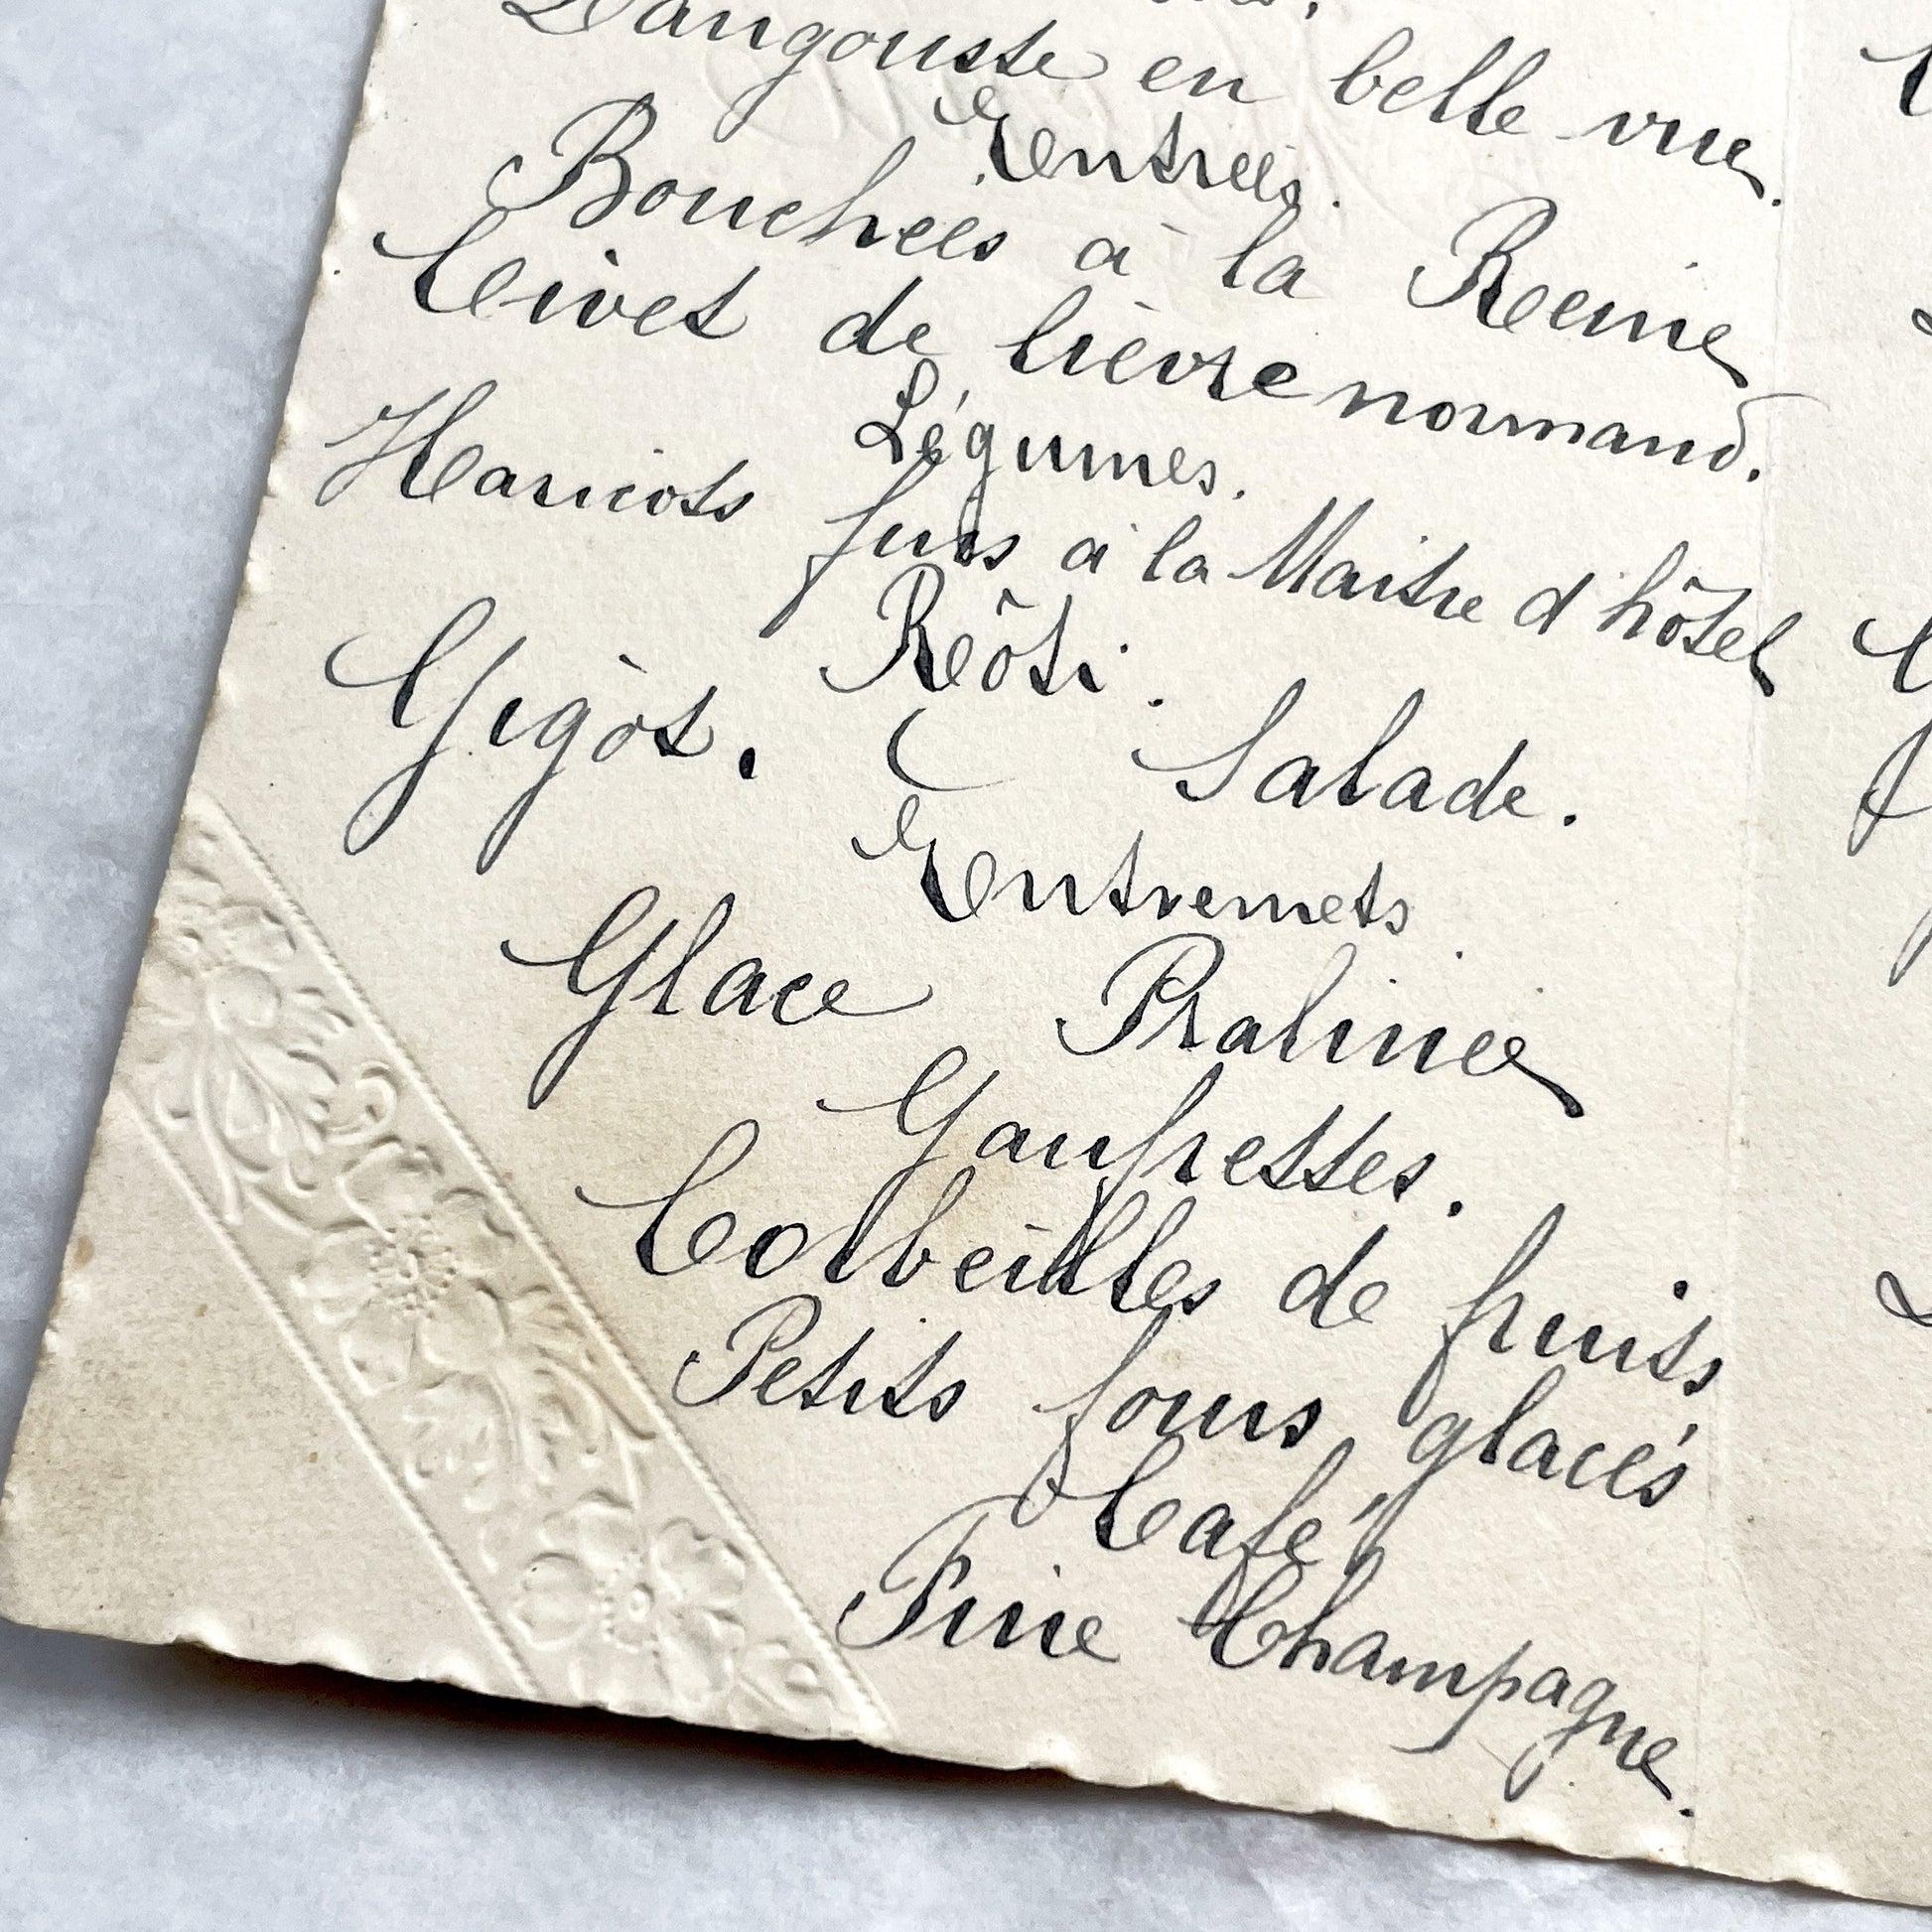 Langouste en belle vue.
Entrées.
Bouchées à la Reine
Civet de lièvre normand.
Légumes.
Haricots fins à la Maitre d'hôtel
Rôti.
Gigot. Salade.
Entremets
Glace Pralinée
Gaufrettes.
Corbeilles de fruits
Petits fours glacés
Café
Fine Champagne.